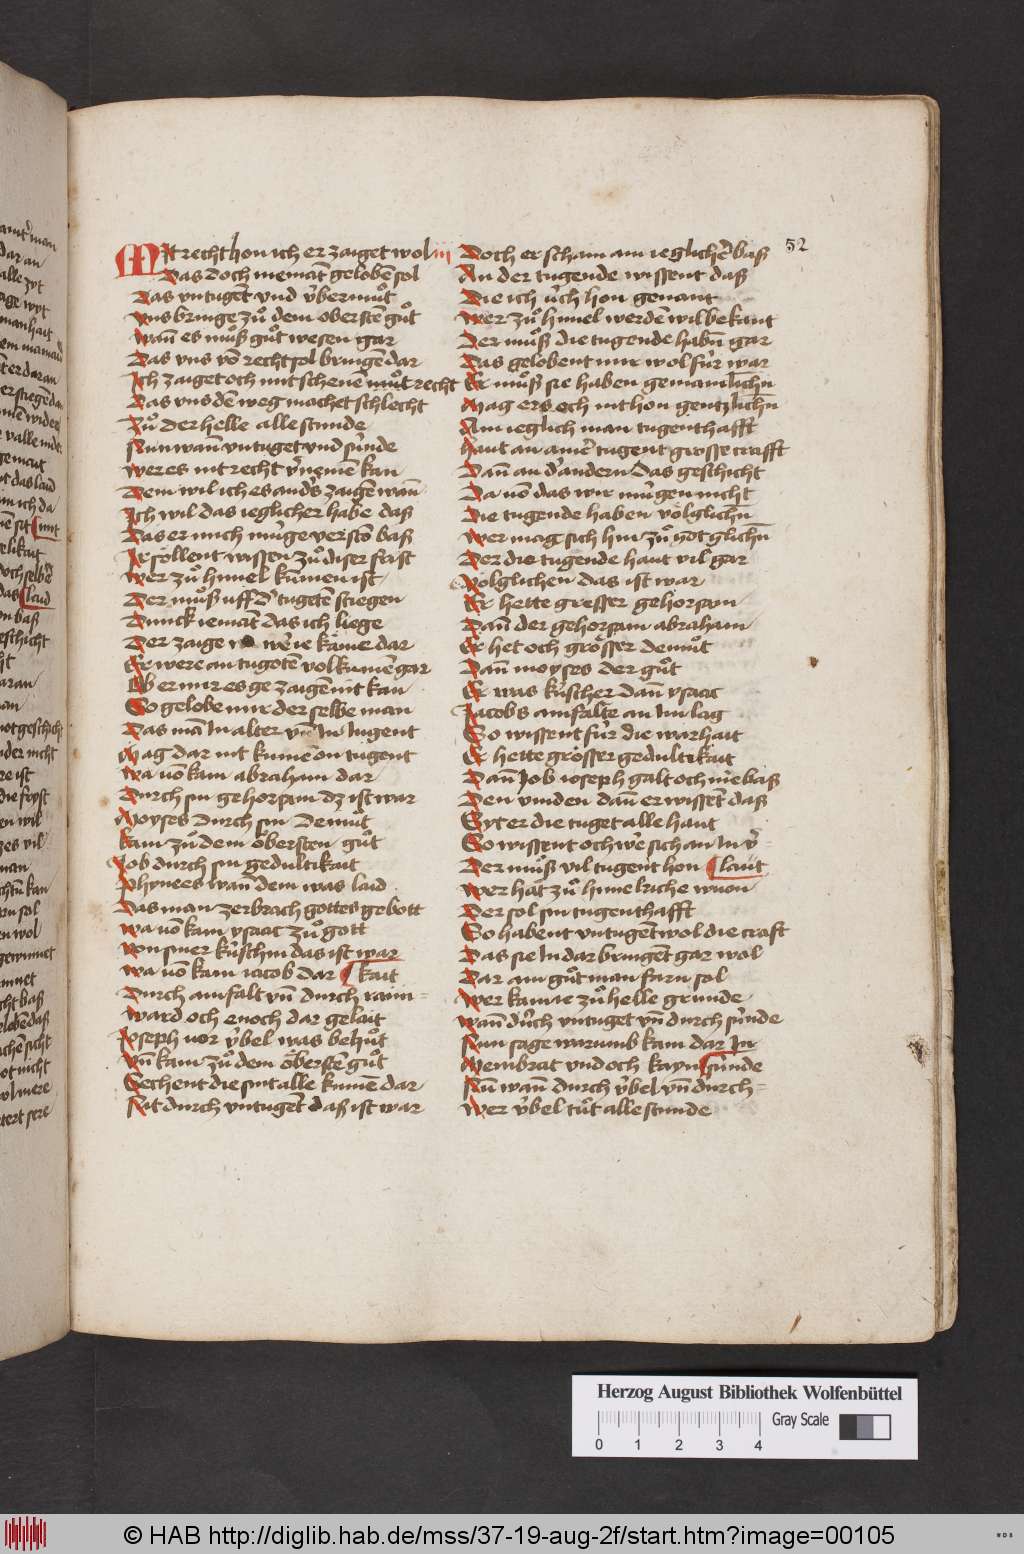 52
Mit recht hon ich er zaiget wol iii
Das doch niemāt gelobē sol
Das vntugēt vnd v̈bermůt
Vns bringe zů dem oberstē gůt
Wañ es můß gůt wesen gar
Das vns vō recht sol bringē dar
Ich zaiget och mit schenē můt recht
Das vns dē weg machet schlecht
Zů der helle alle stunde
Nun wañ vntuget vnd sünde
Wer es nit recht v̾nemē kan
Dem wil ich es anders zaigē wañ
Ich wil das ieglicher habe daß
Das er mich müge verstō baß
Ir sollent wissen zů diser frist
Wer zů himel kumen ist
Der můß uff d̾ tugetē stiegen
Dunck iemāt das ich liege
Der zaige wēie kāme dar
Er were an tugetē volkumē gar
Ob er mir es ge zaigē nit kan
So gelobe mir der selbe man
Das mā In alter vñ In Iugent
Mag dar nit kumē on tugent
Wa uō kam abraham dar
Durch sin gehorsam dz ist war
Moyses durch sin demůt
Kam zů dem öbersten gůt
Job durch sin gedultikait
Phynees wan dem was laid
Das man zerbrach gottes gebott
Wa uō kam ysaac zů gott
Von siner küschin das ist war
Wa uō kam iacob dar ¶ kait
Durch ainfalt vñ durch rain=
Ward och enoch dar gelait
Joseph uor v̈bel was behůt
Vñ kam zů dem öberstē gůt
Sechent die sint alle kumē dar
Nit durch vntugēt daß ist war
Doch er scham am ieglichē baß
An der tugende wissent daß
Die ich v̈ch hon genant
Wer zů himel werdē wil bekant
Der můß die tugende habn̄ gar
Das gelobent mir wol für war
Er můß sie haben gemainlichn̄
Mag ers och nit hon gentzlichn̄
Am ieglich man tugenthafft
Haut an amē tugent grosse crafft
Dañ an d̾ andern das geschicht
Da uō das wir mügen nicht
Die tugende haben völglichn̄
Wer mag sich hin zů got glichn̄
Der die tugende haut vil gar
Volglichen das ist war
Er hette gresser gehorsam
Dañ der gehorsam abraham
Er het och grösser demůt
Dañ moyses der gůt
Er was küscher dan ysaac
Jacobs ainfalte an Im lag
So wissent für die warhait
Er hette grosser gedultikait
Dañ Job ioseph galt och niē baß
Den vinden dañ er wissēt daß
Syt er die tuget alle haut
So wissent och wē sich an In v̾=
Der můß vil tugent hon ¶ laut
Wer hāt zů himelriche wuon
Der sol sin tugenthafft
So habent vntugēt wol die craft
Das sie In dar bringēt gar wol
Dar am gůt man farn sol
Wer kam ie zů helle grunde
Wañ durch vntuget vñ durch sünde
Nun sage warumb kam dar In
Nembrat vnd och kayn ¶ sunde
Nū wañ durch v̈bel vñ durch=
Wer v̈bel tůt alle stunde
Herzog August Bibliothek Wolfenbüttel
Gray Scale
0 1 2 3 4
© HAB http://diglib.hab.de/mss/37-19-aug-2f/start.htm?image=00105
WDB